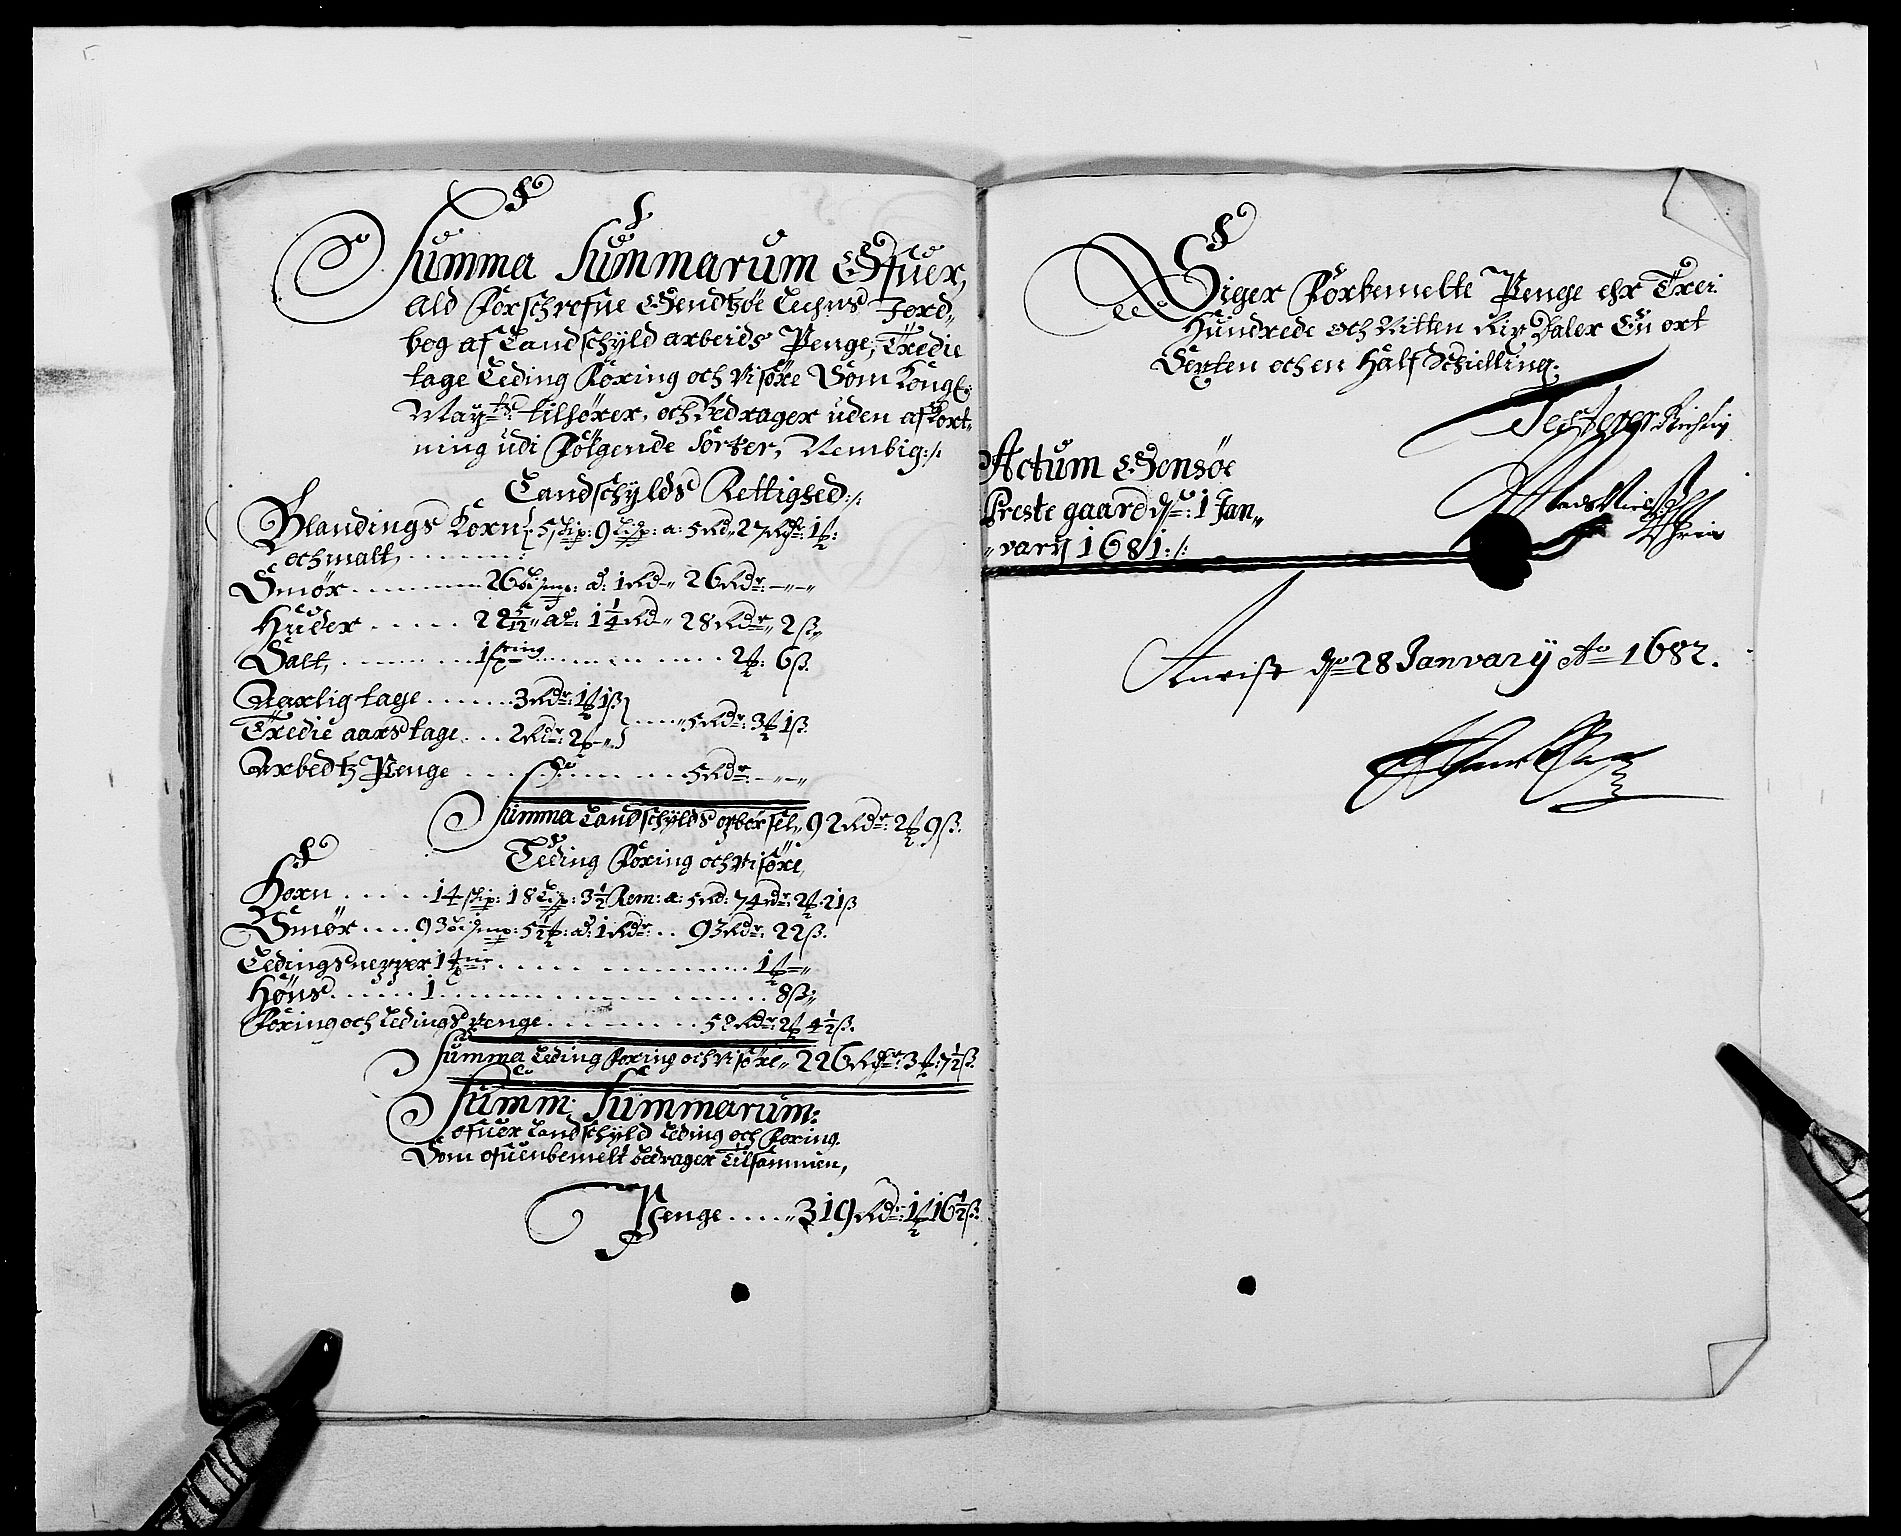 Summa Summarum Ofuer,
ald Forschrefne Giendtzøe Lehns Jord„
bog af Landschyld arbeids Penge, Tredie
tage Leding Foring och Visøre Som Kongl:
May:ts tilhører, och Bedrager uden afkort„
ning udi Følgende Sorter, Nemblig:/:
Landschylds Rettighed:/:
Blandings Korn 5 skip: 9 Lisp: a: 5 Rd„ 27 Rdr: 1 ß:
och malt
Smør 26 bismp: ad: 1 Rd„ 26 Rdr: – „ – „
Huder 22 5/12 „ ad: 1 1/4 Rd„ 28 Rdr„ 2 ß„
Salt, 1 string 2 ß: 6 ß.
Aarlig tage 3 Rdr: 1 ß 1 ß
Tredie aars tage 2 Rdr: 2 ß „ 5 Rdr: 3 ß 1 ß.
Arbedtz Penge 5 Rdr: – „ – „
Summa Landschylds opbørsel„ 92 Rdr: 2 ß 9 ß.
Leding Foring och Visøre,
Korn 14 skip: 18 Lisp: 3 1/2 Rem: a: 5 Rd: 74 Rdr: 2 ß 21 ß
Smør 93 bismp: 5 1/2 ß: ad: 1 Rdr: 93 Rdr: 22 ß.
Ledingsnepper 1 1 ß – „
Høns 1 8 ß „
Foring och Ledings penge 58 Rdr: 2 ß 4 1/2 ß.
Summa Leding Foring och Visøre„ 226 Rdr: 3 ß: 7 1/2 ß.
Summ: Summarum:
ofuer Landschyld Leding och Foring.
Som ofuenbemelt bedrager Tilsammen,
Penge „ 319 Rdr: 1 ß 16 1/2 ß.
Siger Forbemelte Penge ehr Trei
Hundrede och Nitten Rix Daler En ort
Sexten och en Half Schilling.
Actum Giensøe
Preste gaard dn: 1 Jan„
„vary 1681:/:
dn 28 January Ao 1682.